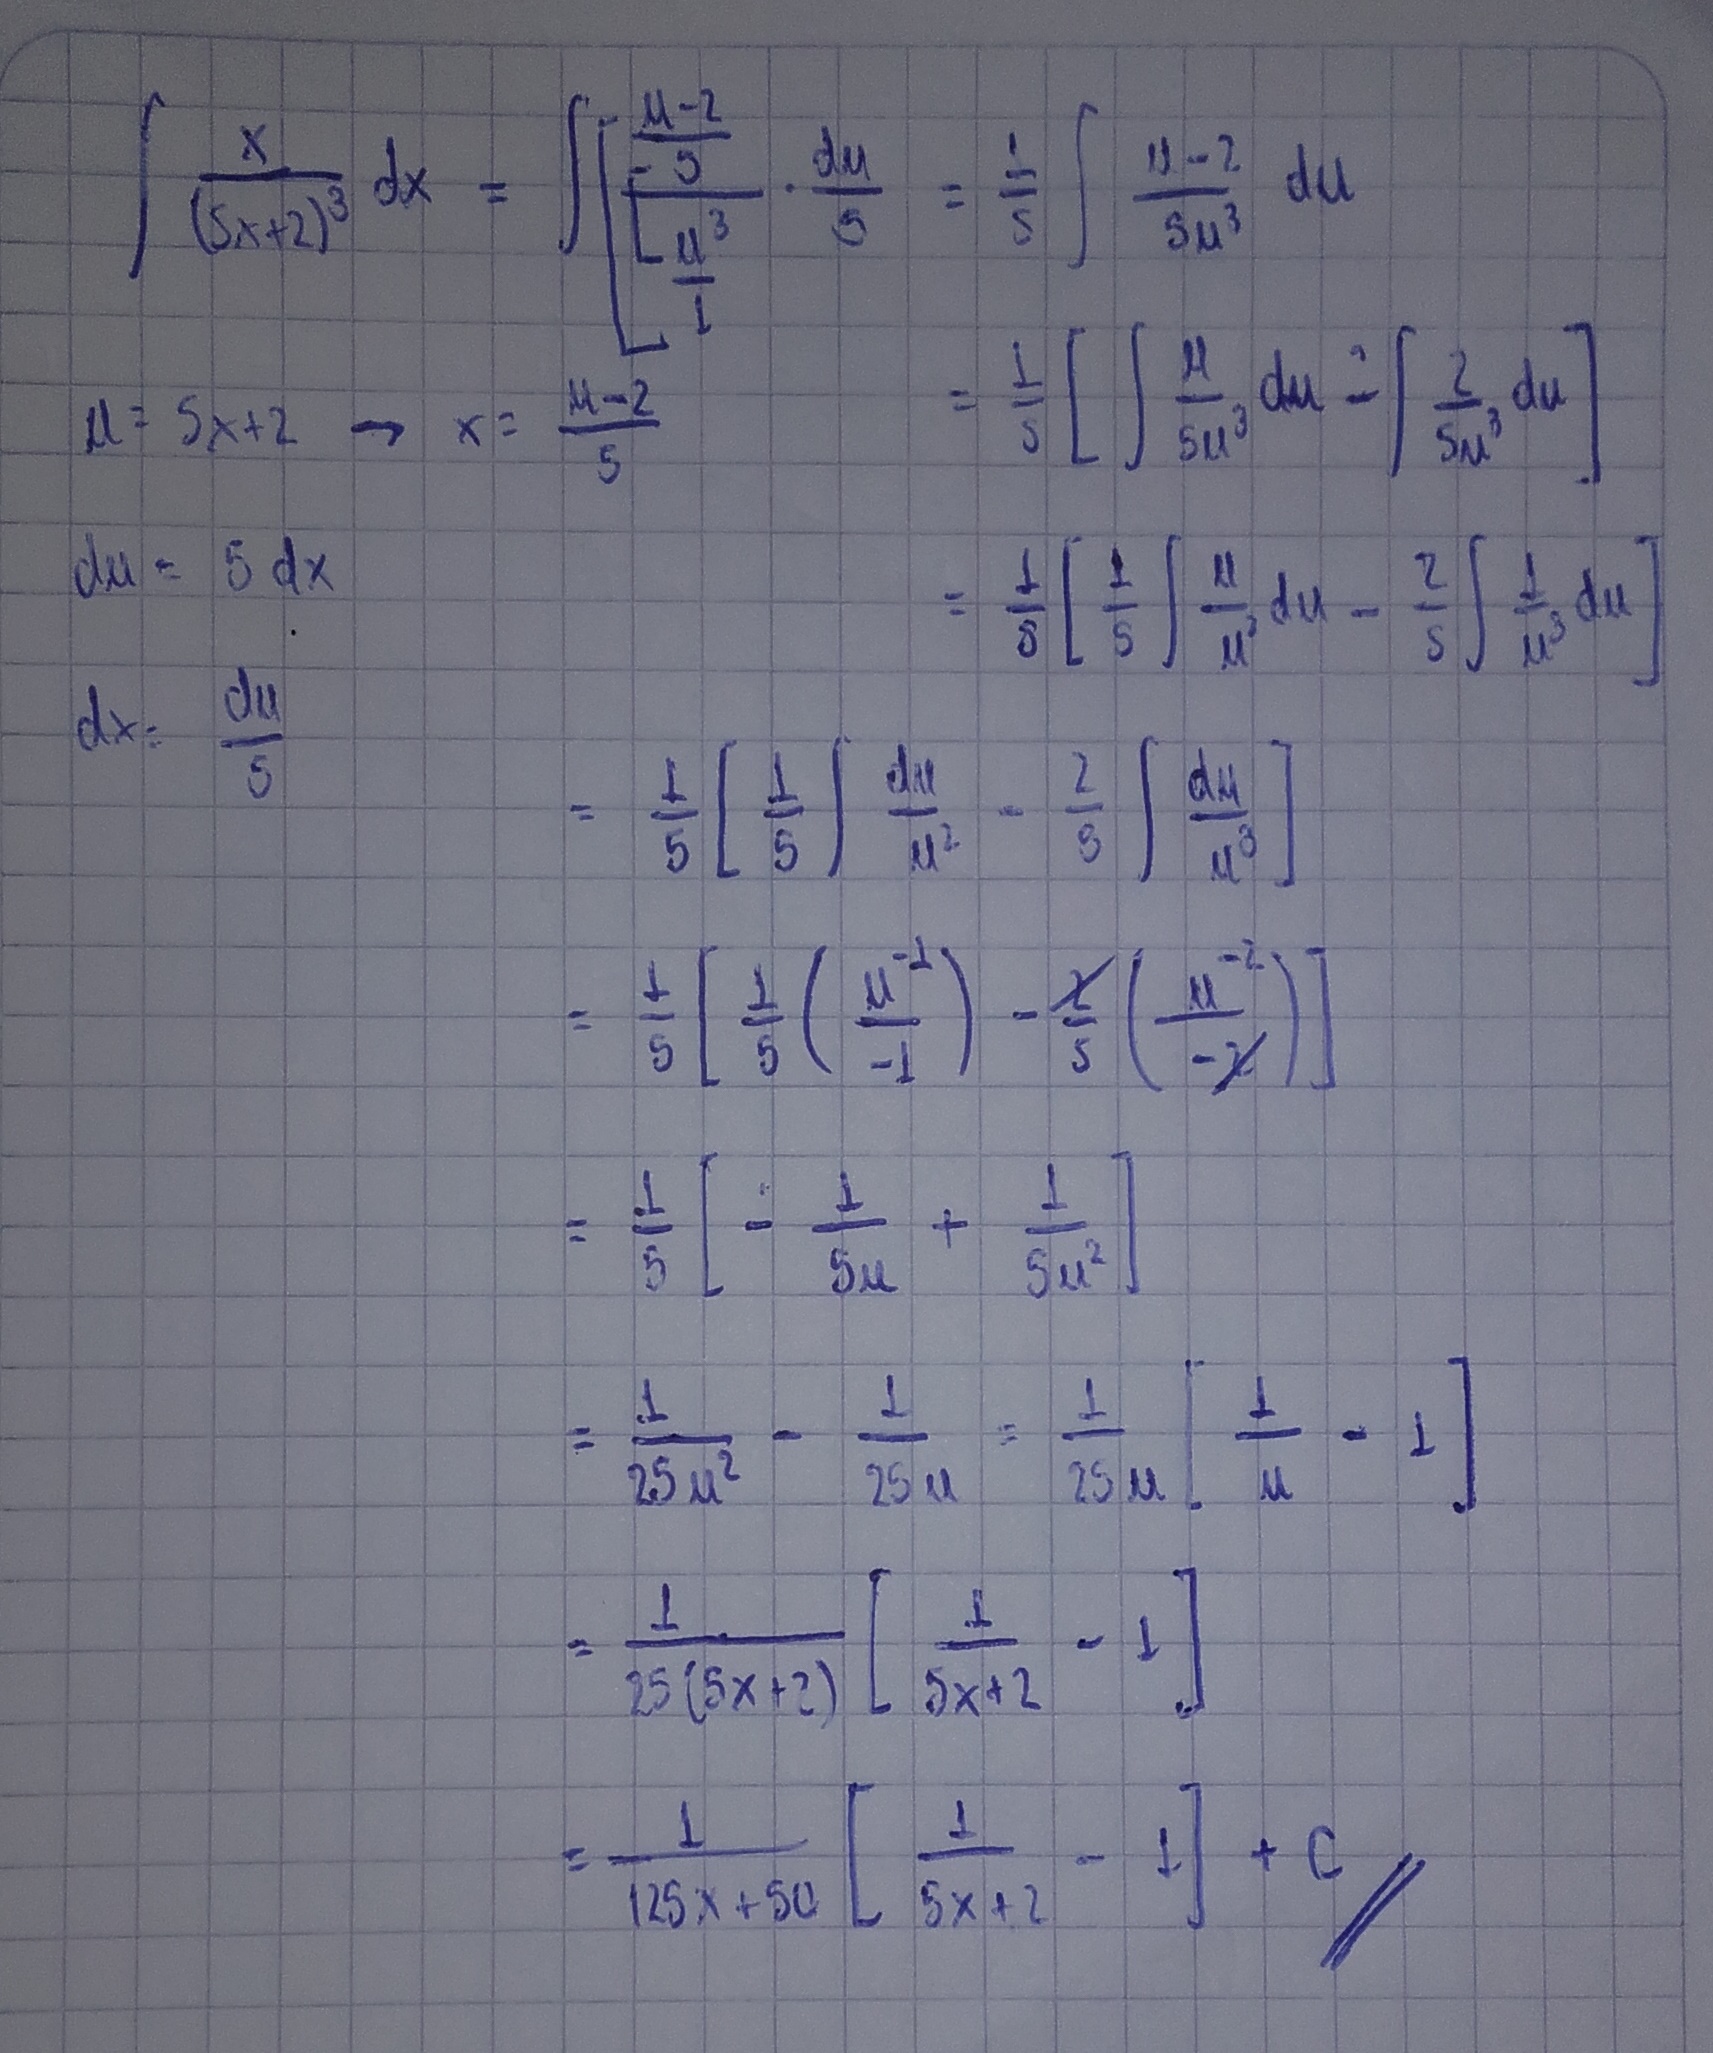 ∫ x/(5x+2)³ dx = ∫ [((u-2)/5)/(u³/1)] · du/5 = 1/5 ∫ (u-2)/(5u³) du
= 1/5 [∫ u/(5u³) du - ∫ 2/(5u³) du]
u = 5x+2 → x = (u-2)/5
du = 5 dx
= 1/5 [1/5 ∫ u/u³ du - 2/5 ∫ 1/u³ du]
dx = du/5
= 1/5 [1/5 ∫ du/u² - 2/5 ∫ du/u³]
= 1/5 [1/5 (u⁻¹/-1) - 2/5 (u⁻²/-2)]
= 1/5 [- 1/(5u) + 1/(5u²)]
= 1/(25u²) - 1/(25u) = 1/(25u) [1/u - 1]
= 1/(25(5x+2)) [1/(5x+2) - 1]
= 1/(125x+50) [1/(5x+2) - 1] + C //